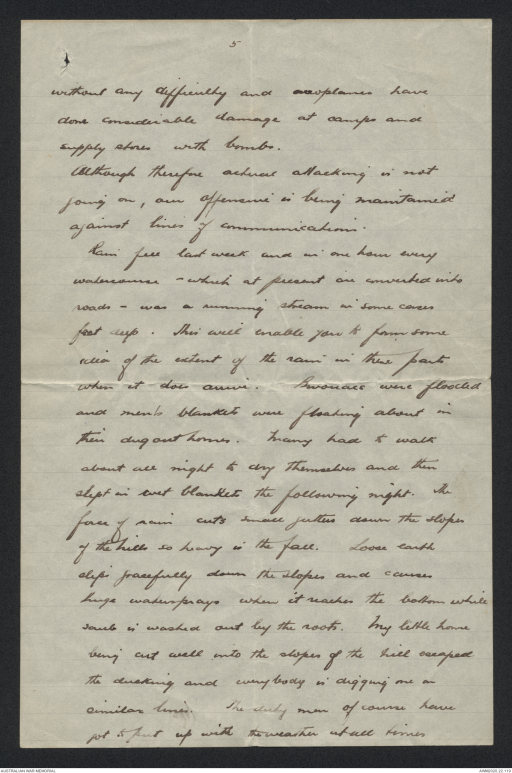 5
without any difficulty and aeroplanes have
done considerable damage at camps and
supply stores with bombs.
Although therefore actual attacking is not
going on, our offensive is being maintained
against lines of communication.
Rain fell last week and in one hour every
watercourse - which at present are converted into
roads - was a running stream in some cases
feet deep. This will enable you to form some
idea of the extent of the rain in these parts
when it does arrive. Bivouacs were flooded
and men's blankets were floating about in
their dugout homes. Many had to walk
about all night to dry themselves and then
slept in wet blankets the following night. The
force of rain cuts small gutters down the slopes
of the hills so heavy is the fall. Loose earth
slips gracefully down the slopes and causes
huge watersprays when it reaches the bottom while
scrub is washed out by the roots. My little home
being cut well into the slopes of the hill escaped
the ducking and everybody is digging one on
similar lines. The duty men of course have
got to put up with the weather at all times
AUSTRALIAN WAR MEMORIAL